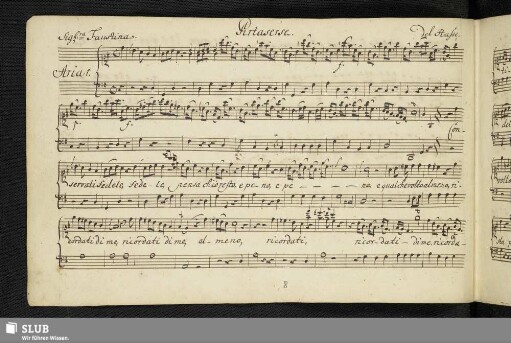 Sigra Faustina.
Artaserse
Del Hasse.
Aria 1.
f.
p. f.
Con-
serrati fedele, fede le, pensa ch'io resto, e peno, e pe - - - no e qualche volta almeno, ri-
cordati di me, ricordati di me, al-meno, ricordati, ricor-dati-di me, ricorda-
8
SLUB
Wir führen Wissen.